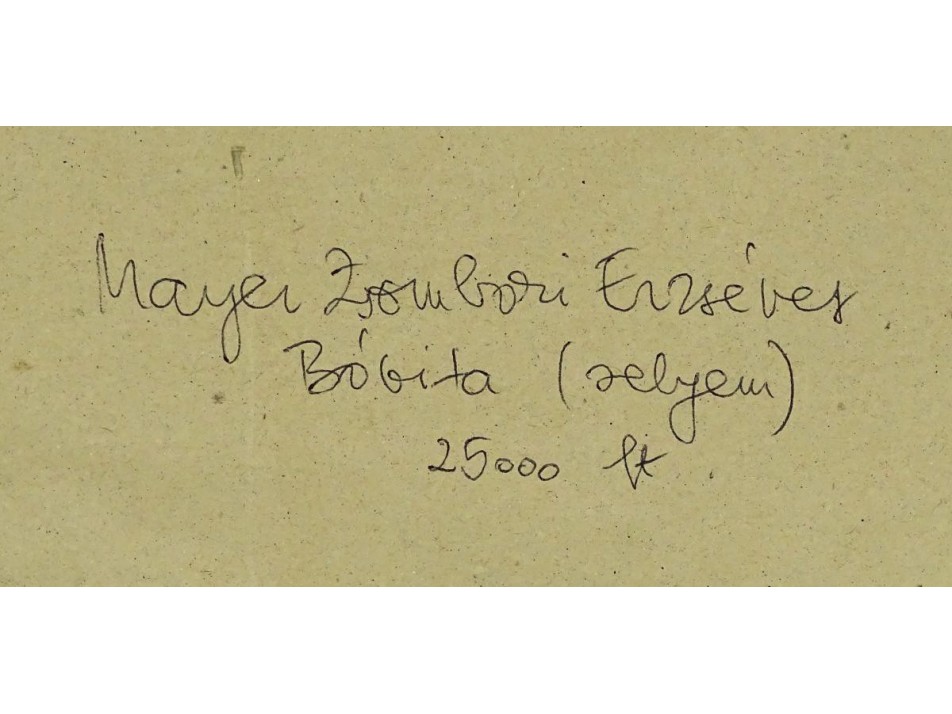 Mayer Zsombori Erzsévet
Bóbita (selyem)
25000 ft.